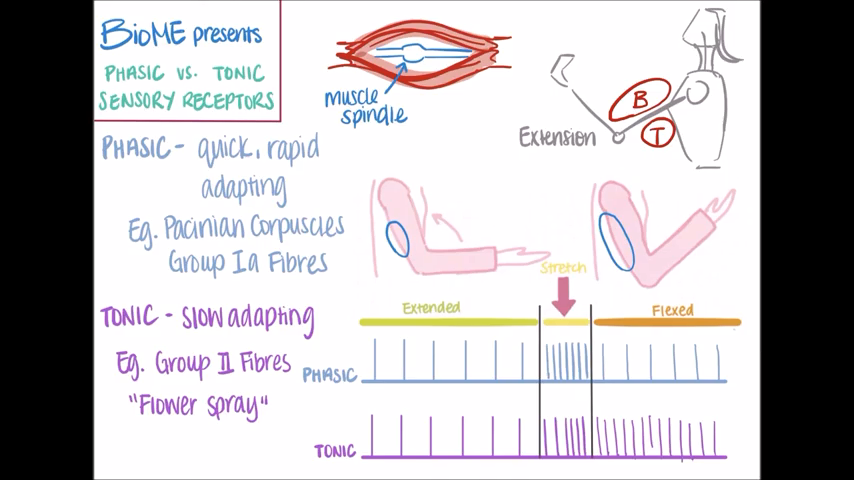 BioME presents
PHASIC vs. TONIC
SENSORY RECEPTORS
muscle
spindle
B
T
Extension
PHASIC - quick, rapid
adapting
Eg. Pacinian Corpuscles
Group Ia Fibres
TONIC - slow adapting
Eg. Group II Fibres
"Flower spray"
Stretch
Extended
Flexed
PHASIC
TONIC